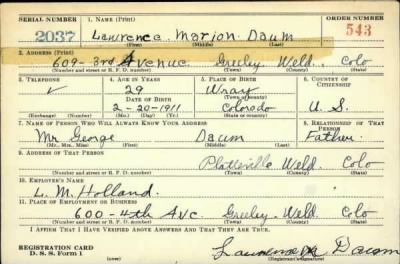 SERIAL NUMBER 1. NAME (Print) ORDER NUMBER
2037 Lawrence Marion Daum 543
(First) (Middle) (Last)
2. ADDRESS (Print)
609-3rd Avenue Greeley Weld. Colo
(Number and street or R. F. D. number) (Town) (County) (State)
3. TELEPHONE 4. AGE IN YEARS 5. PLACE OF BIRTH 6. COUNTRY OF CITIZENSHIP
29 Wray
DATE OF BIRTH (Town or county)
2-20-1911 Colorado U. S.
(Exchange) (Number) (Mo.) (Day) (Yr.) (State or country)
7. NAME OF PERSON WHO WILL ALWAYS KNOW YOUR ADDRESS 8. RELATIONSHIP OF THAT PERSON
Mr George Daum Father
(Mr., Mrs., Miss) (First) (Middle) (Last)
9. ADDRESS OF THAT PERSON
Platteville Weld Colo
(Number and street or R. F. D. number) (Town) (County) (State)
10. EMPLOYER'S NAME
L. M. Holland.
11. PLACE OF EMPLOYMENT OR BUSINESS
600-4th Ave. Greeley. Weld. Colo
(Number and street or R. F. D. number) (Town) (County) (State)
I AFFIRM THAT I HAVE VERIFIED ABOVE ANSWERS AND THAT THEY ARE TRUE.
REGISTRATION CARD
D. S. S. Form 1 Lawrence M Daum
(Registrant's signature)